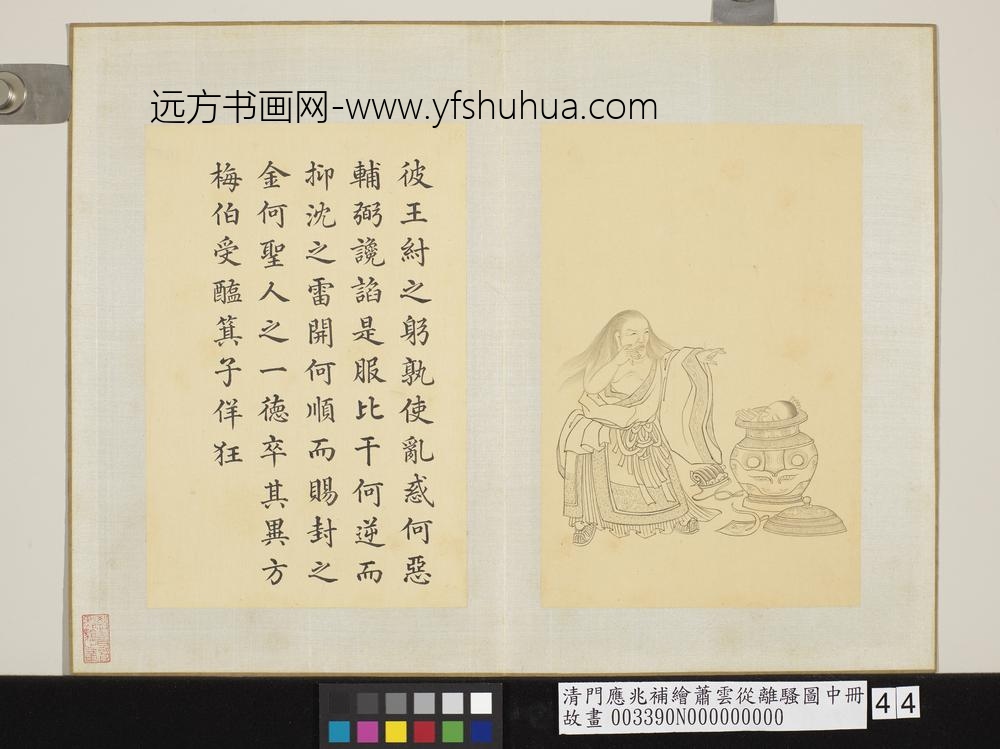 远方书画网-www.yfshuhua.com
彼王紂之躬孰使亂惑何惡
輔弼讒諂是服比干何逆而
抑沈之雷開何順而賜封之
金何聖人之一德卒其異方
梅伯受醢箕子佯狂
清門應兆補繪蕭雲從離騷圖中冊
故畫 003390N000000000
44